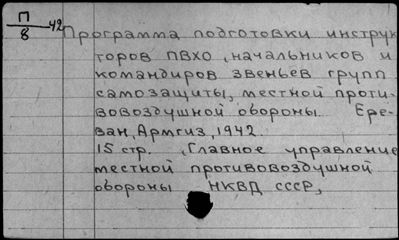 П
8
42
Программа подготовки инструк
торов ПВХО, начальников и
командиров звеньев групп
самозащиты, местной проти-
вовоздушной обороны. Ере-
ван, Армгиз, 1942.
15 стр. (Главное управление
местной противовоздушной
обороны НКВД СССР,